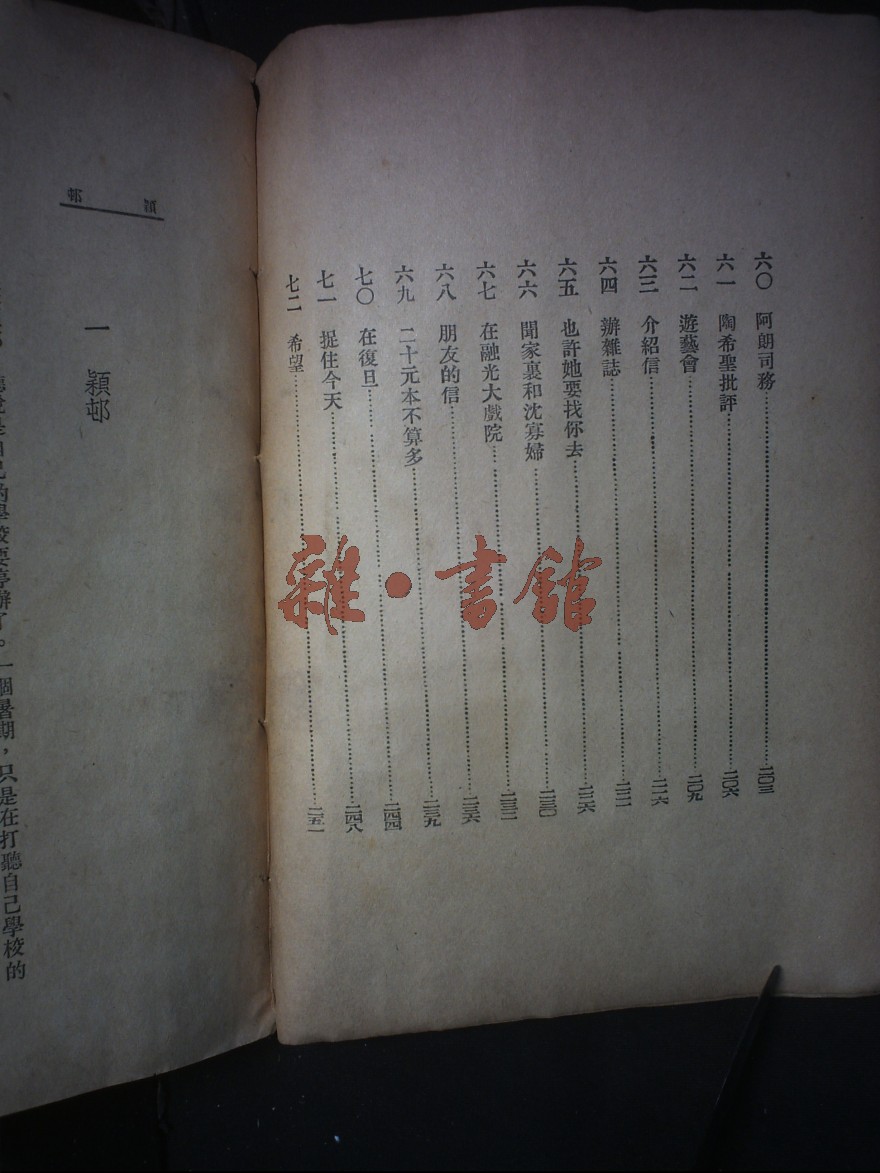 六〇　阿朗司務……二〇三
六一　陶希聖批評……二〇六
六二　遊藝會……二〇九
六三　介紹信……二一六
六四　辦雜誌……二二一
六五　也許她要找你去……二二六
六六　聞家裏和沈寡婦……二三〇
六七　在融光大戲院……二三二
六八　朋友的信……二三六
六九　二十元本不算多……二三九
七〇　在復旦……二四四
七一　捉住今天……二四八
七二　希望……二五一
雜·書館
穎邨
一　穎邨
學校要停辦了。一個暑期，只是在打聽自己學校的